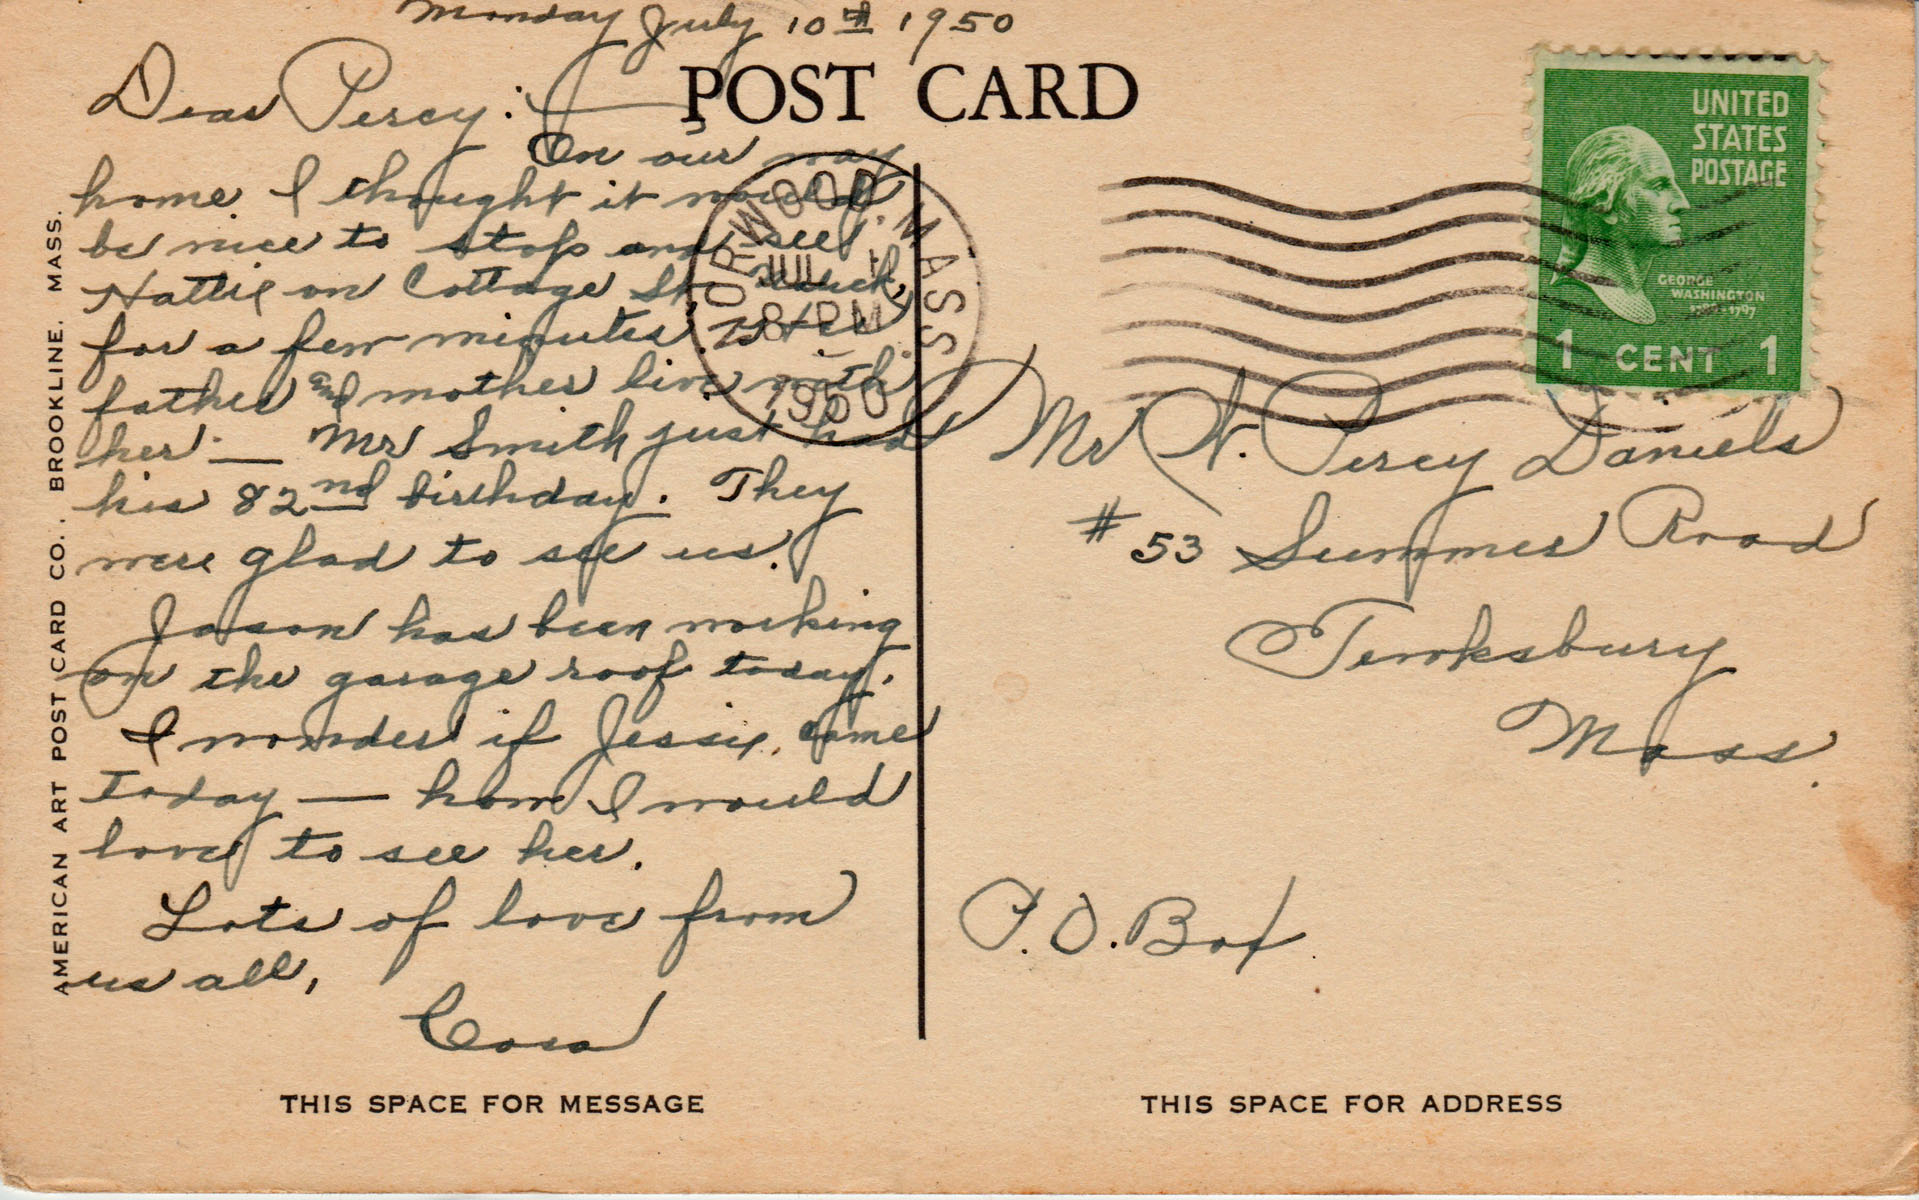 Monday July 10th 1950
POST CARD
Dear Percy:
On our way
home I thought it would
be nice to stop and see
Hattie on Cottage St.
for a few minutes. Her
father and mother live with
her — Mr Smith just had
his 82nd birthday. They
were glad to see us.
Jason has been working
on the garage roof today.
I wonder if Jessie came
today — how I would
love to see her.
Lots of love from
us all,
Cora
THIS SPACE FOR MESSAGE
AMERICAN ART POST CARD CO., BROOKLINE, MASS.
NORWOOD, MASS.
JUL
8 PM
1950
UNITED
STATES
POSTAGE
GEORGE
WASHINGTON
1 CENT 1
Mr N. Percy Daniels
# 53 Summer Road
Tewksbury
Mass.
P.O. Box
THIS SPACE FOR ADDRESS